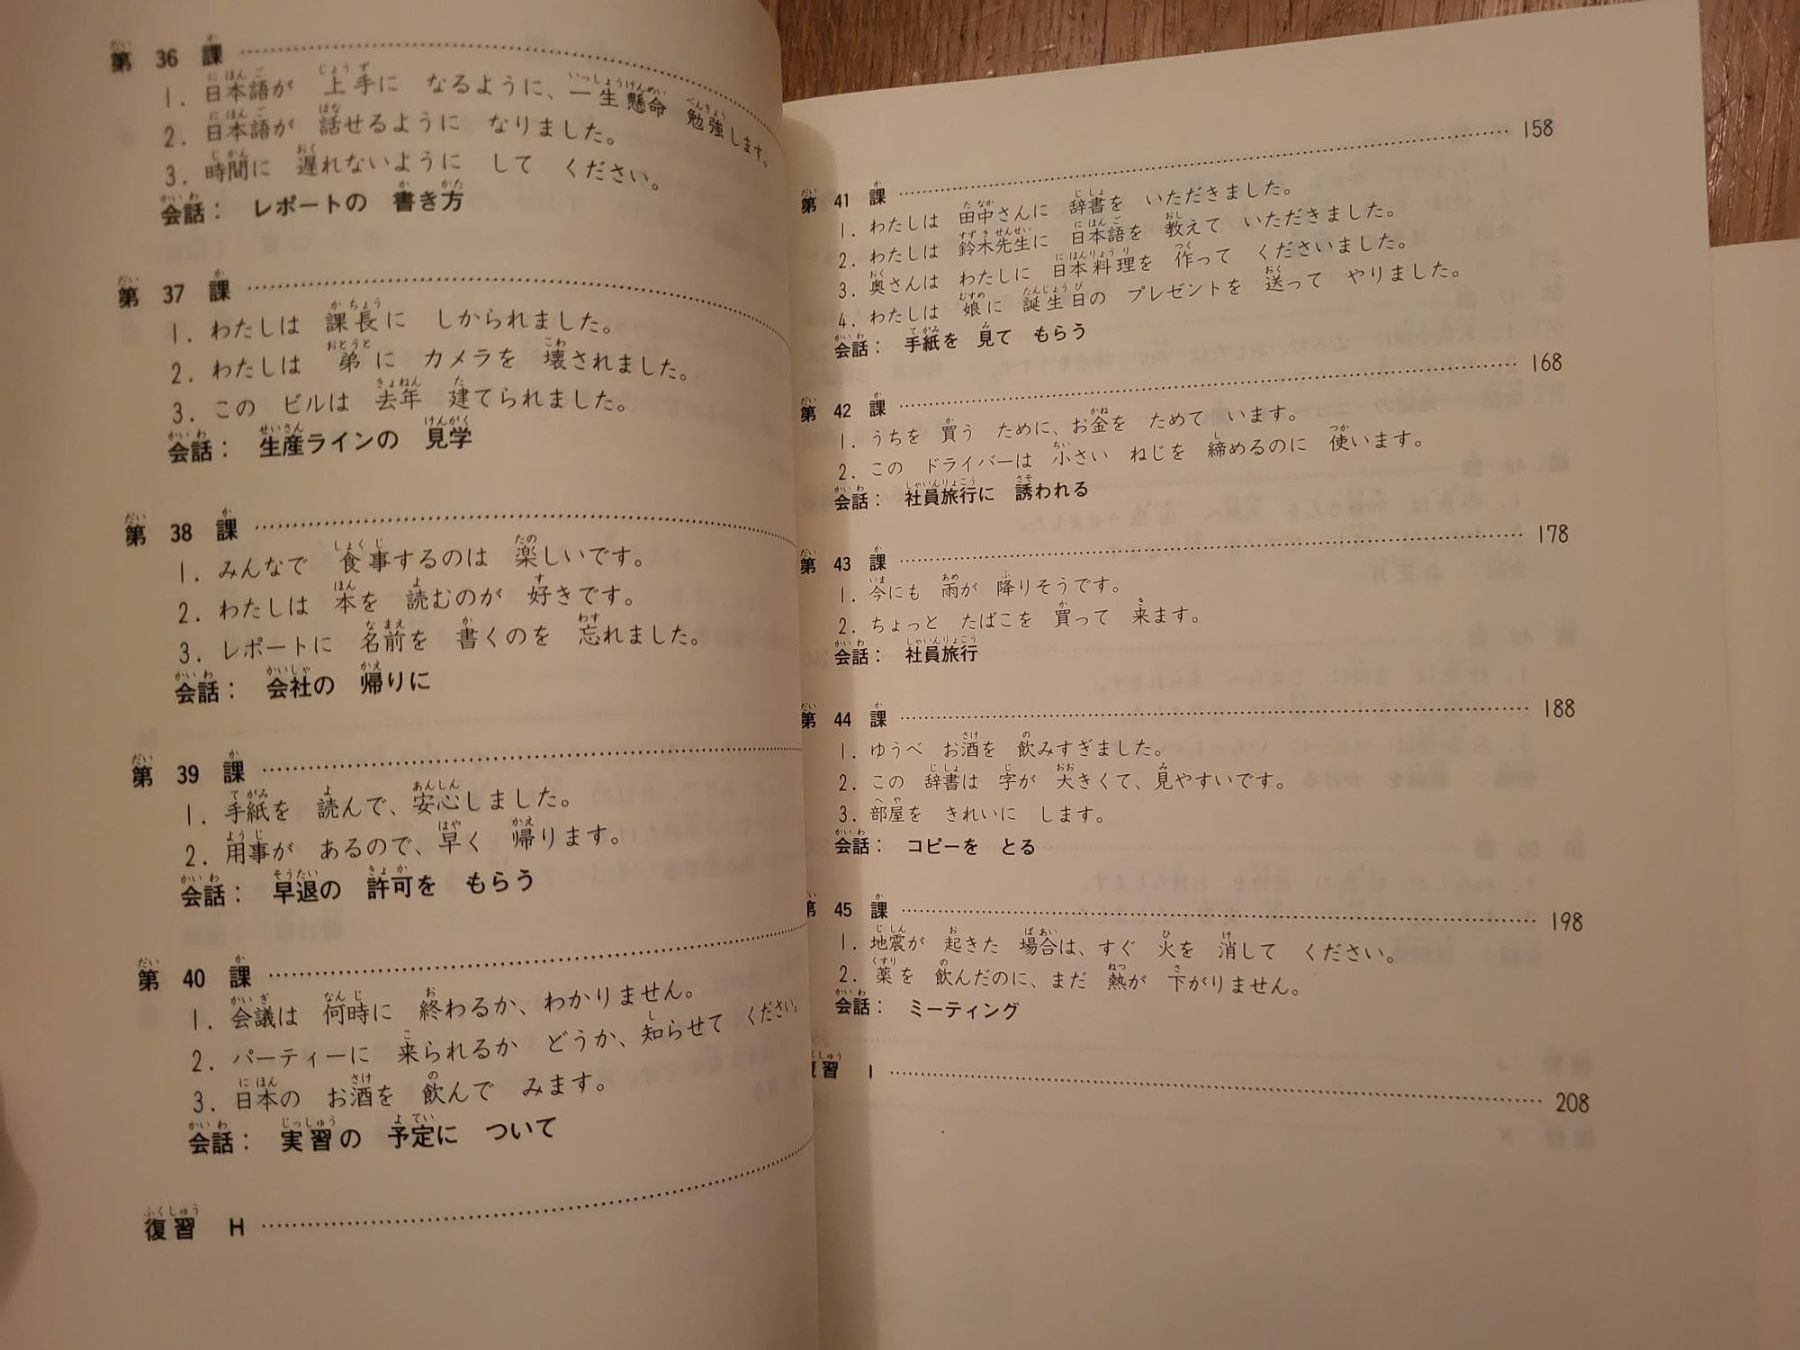 第 36 課
1. 日本語が 上手に なるように、一生懸命 勉強します。
2. 日本語が 話せるように なりました。
3. 時間に 遅れないように して ください。
会話： レポートの 書き方
第 37 課
1. わたしは 課長に しかられました。
2. わたしは 弟に カメラを 壊されました。
3. この ビルは 去年 建てられました。
会話： 生産ラインの 見学
第 38 課
1. みんなで 食事するのは 楽しいです。
2. わたしは 本を 読むのが 好きです。
3. レポートに 名前を 書くのを 忘れました。
会話： 会社の 帰りに
第 39 課
1. 手紙を 読んで、安心しました。
2. 用事が あるので、早く 帰ります。
会話： 早退の 許可を もらう
第 40 課
1. 会議は 何時に 終わるか、わかりません。
2. パーティーに 来られるか どうか、知らせて ください。
3. 日本の お酒を 飲んで みます。
会話： 実習の 予定に ついて
復習 H
第 41 課 158
1. わたしは 田中さんに 辞書を いただきました。
2. わたしは 鈴木先生に 日本語を 教えて いただきました。
3. 奥さんは わたしに 日本料理を 作って くださいました。
4. わたしは 娘に 誕生日の プレゼントを 送って やりました。
会話： 手紙を 見て もらう
第 42 課 168
1. うちを 買う ために、お金を ためて います。
2. この ドライバーは 小さい ねじを 締めるのに 使います。
会話： 社員旅行に 誘われる
第 43 課 178
1. 今にも 雨が 降りそうです。
2. ちょっと たばこを 買って 来ます。
会話： 社員旅行
第 44 課 188
1. ゆうべ お酒を 飲みすぎました。
2. この 辞書は 字が 大きくて、見やすいです。
3. 部屋を きれいに します。
会話： コピーを とる
第 45 課 198
1. 地震が 起きた 場合は、すぐ 火を 消して ください。
2. 薬を 飲んだのに、まだ 熱が 下がりません。
会話： ミーティング
復習 I 208